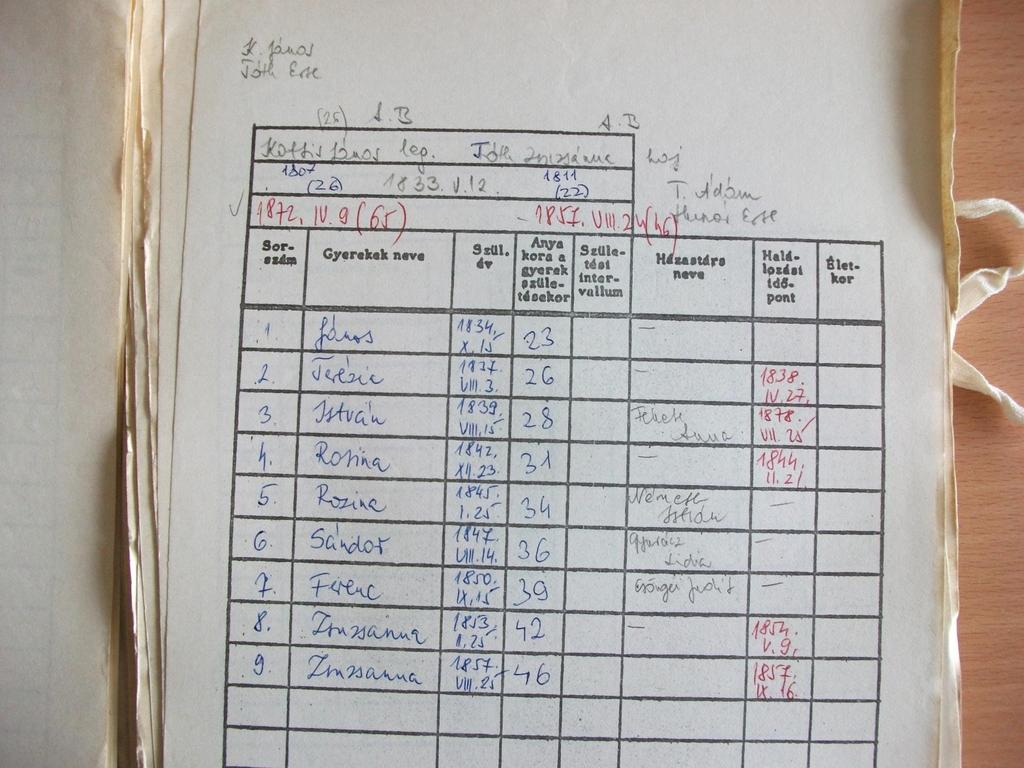 K. János
Tóth Erse
(26) A. B A. B
János leg. Tóth Zsuzsánna haj
1807 1811
(26) 1833. V. 12. (22)
T. Ádám
Erse
1872. IV. 9 (65) - 1857. VIII. 24 (46)
Sor-szám Gyerekek neve Szül. év Anya kora a gyerek születésekor Születési intervallum Házastárs neve Halálozási időpont Életkor
1. János 1834. X. 15 23 —
2. Terézia 1837. VIII. 3. 26 1838. IV. 27.
3. István 1839. VIII. 15 28 Fekete Anna 1878. VII. 25
4. Rosina 1842. XII. 23. 31 — 1844. II. 21
5. Rozina 1845. I. 25 34 Németh István —
6. Sándor 1847. VIII. 14. 36 Lidia —
7. Ferenc 1850. IX. 15 39 Csöngei Judit —
8. Zsuzsanna 1853. II. 25 42 — 1854. V. 9.
9. Zsuzsanna 1857. VIII. 25 46 1857. IX. 16